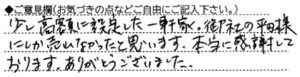 ◆ご意見欄(お気づきの点などご自由にご記入下さい。)
少し高額に設定した一軒家。御社の平田様
にしか売いなかったと思います。本当に感謝して
おります。ありがとうございました。